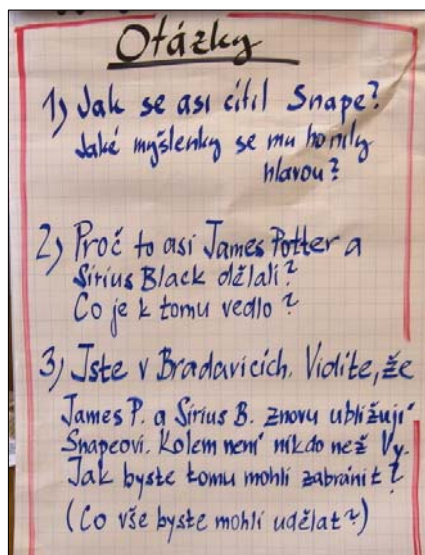 Otázky
1) Jak se asi cítil Snape?
Jaké myšlenky se mu honily
hlavou?
2) Proč to asi James Potter a
Sirius Black dělali?
Co je k tomu vedlo?
3) Jste v Bradavicích. Vidíte, že
James P. a Sirius B. znovu ubližují
Snapeovi. Kolem není nikdo než Vy.
Jak byste tomu mohli zabránit?
(Co vše byste mohli udělat?)